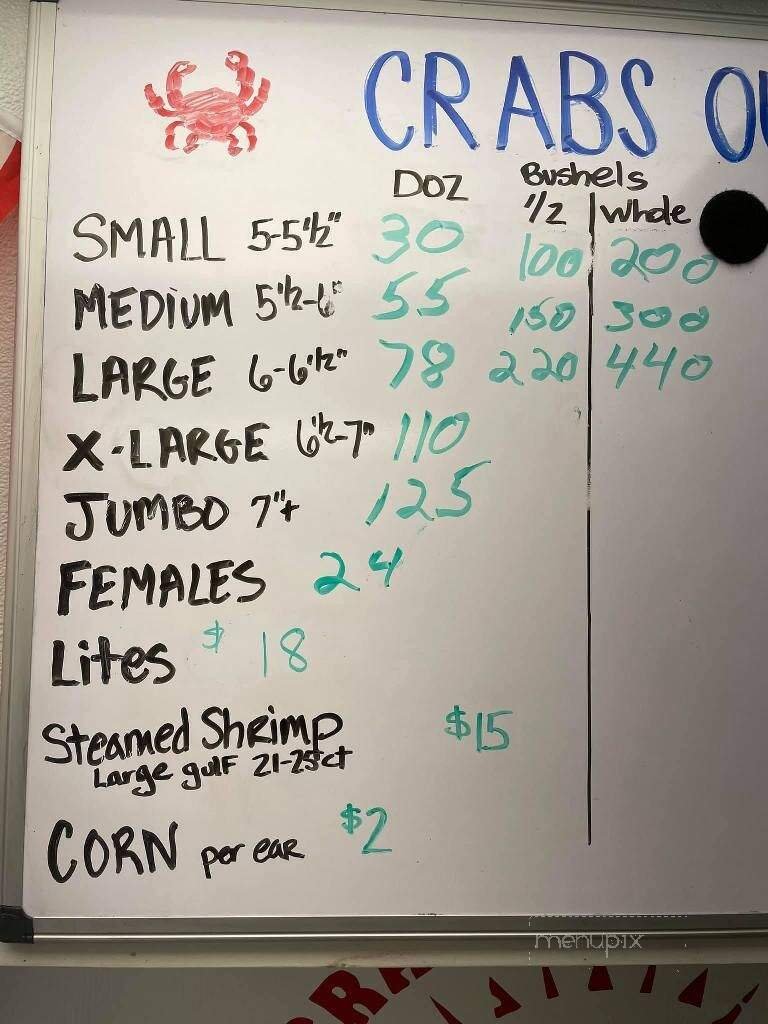 CRABS OU
DOZ Bushels
1/2 Whole
SMALL 5-5 1/2" 30 100 200
MEDIUM 5 1/2-6" 55 150 300
LARGE 6-6 1/2" 78 220 440
X-LARGE 6 1/2-7" 110
JUMBO 7"+ 125
FEMALES 24
Lites $ 18
Steamed Shrimp $15
Large gulf 21-25ct
CORN per ear $2
menupix